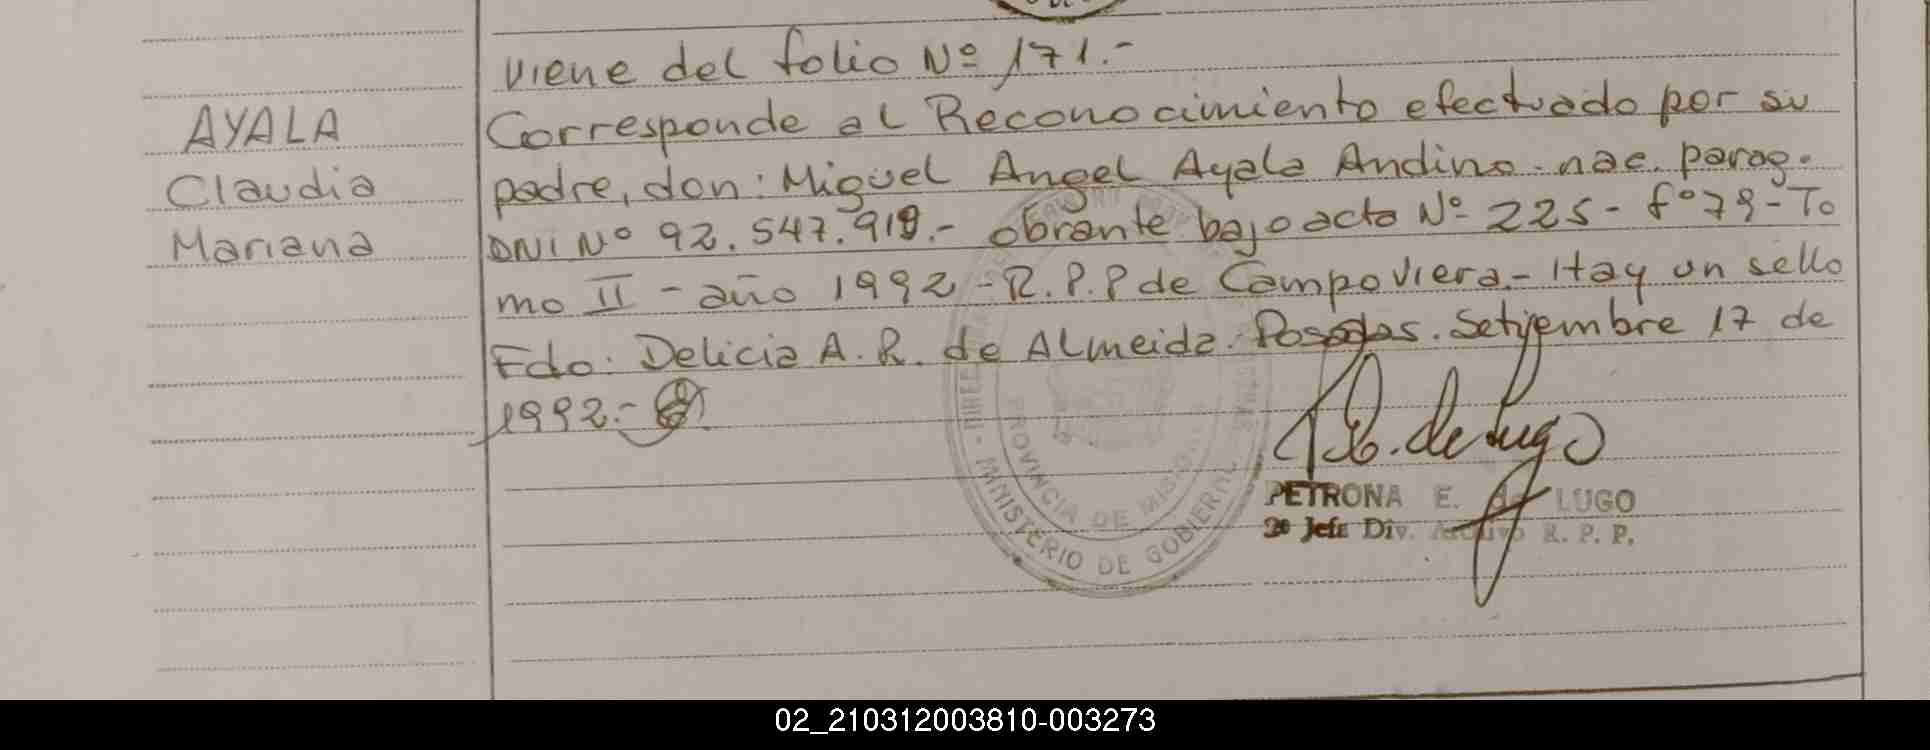 viene del folio Nº 171.-
AYALA
Claudia
Mariana
Corresponde al Reconocimiento efectuado por su
padre, don: Miguel Angel Ayala Andino. nac. parag.
DNI Nº 92.547.919.- obrante bajo acta Nº 225 - fº 79 - To
mo II - año 1992 - R.P.P de Campo Viera.- Hay un sello
Fdo: Delicia A. R. de Almeida. Posadas. Setiembre 17 de
1992.-
MINISTERIO DE GOBIERNO
PROVINCIA DE MISIONES
de Lugo
PETRONA E. de LUGO
2º Jefe Div. Archivo R. P. P.
02_210312003810-003273